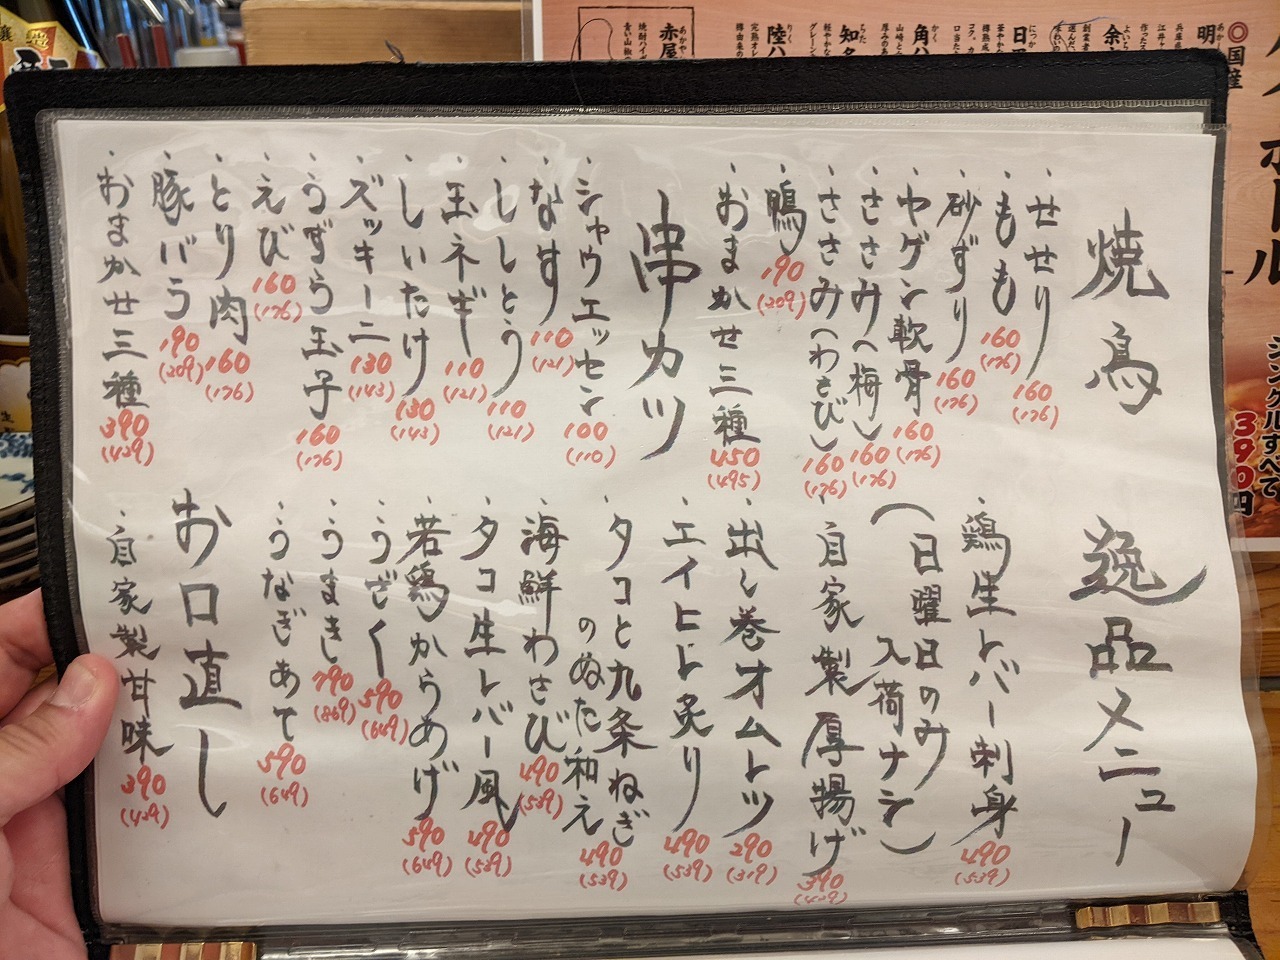 焼鳥
・せせり 160 (176)
・もも 160 (176)
・砂ずり 160 (176)
・ヤゲン軟骨 160 (176)
・ささみ(梅) 160 (176)
・ささみ(わさび) 160 (176)
・鴨 190 (209)
・おまかせ三種 450 (495)
串カツ
・シャウエッセン 100 (110)
・なす 110 (121)
・ししとう 110 (121)
・玉ネギ 110 (121)
・しいたけ 130 (143)
・ズッキーニ 130 (143)
・うずら玉子 160 (176)
・えび 160 (176)
・とり肉 160 (176)
・豚バラ 190 (209)
・おまかせ三種 390 (429)
逸品メニュー
・鶏生レバー刺身 490 (539)
(日曜日のみ
入荷ナシ)
・自家製厚揚げ 390 (429)
・出し巻オムレツ 290 (319)
・エイヒレ炙り 490 (539)
・タコと九条ねぎ
のぬた和え 490 (539)
・海鮮わさび 490 (539)
・タコ生レバー風 490 (539)
・若鶏からあげ 590 (649)
・うざく 590 (649)
・うまき 790 (869)
・うなぎあて 590 (649)
お口直し
・自家製甘味 390 (429)
◎国産
シングルすべて
390円
赤屋